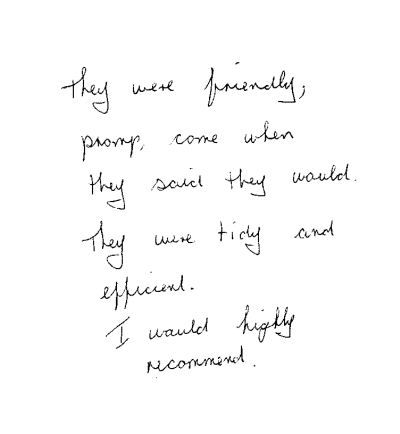 They were friendly,
promp, come when
they said they would.
They were tidy and
efficient.
I would highly
recommend.